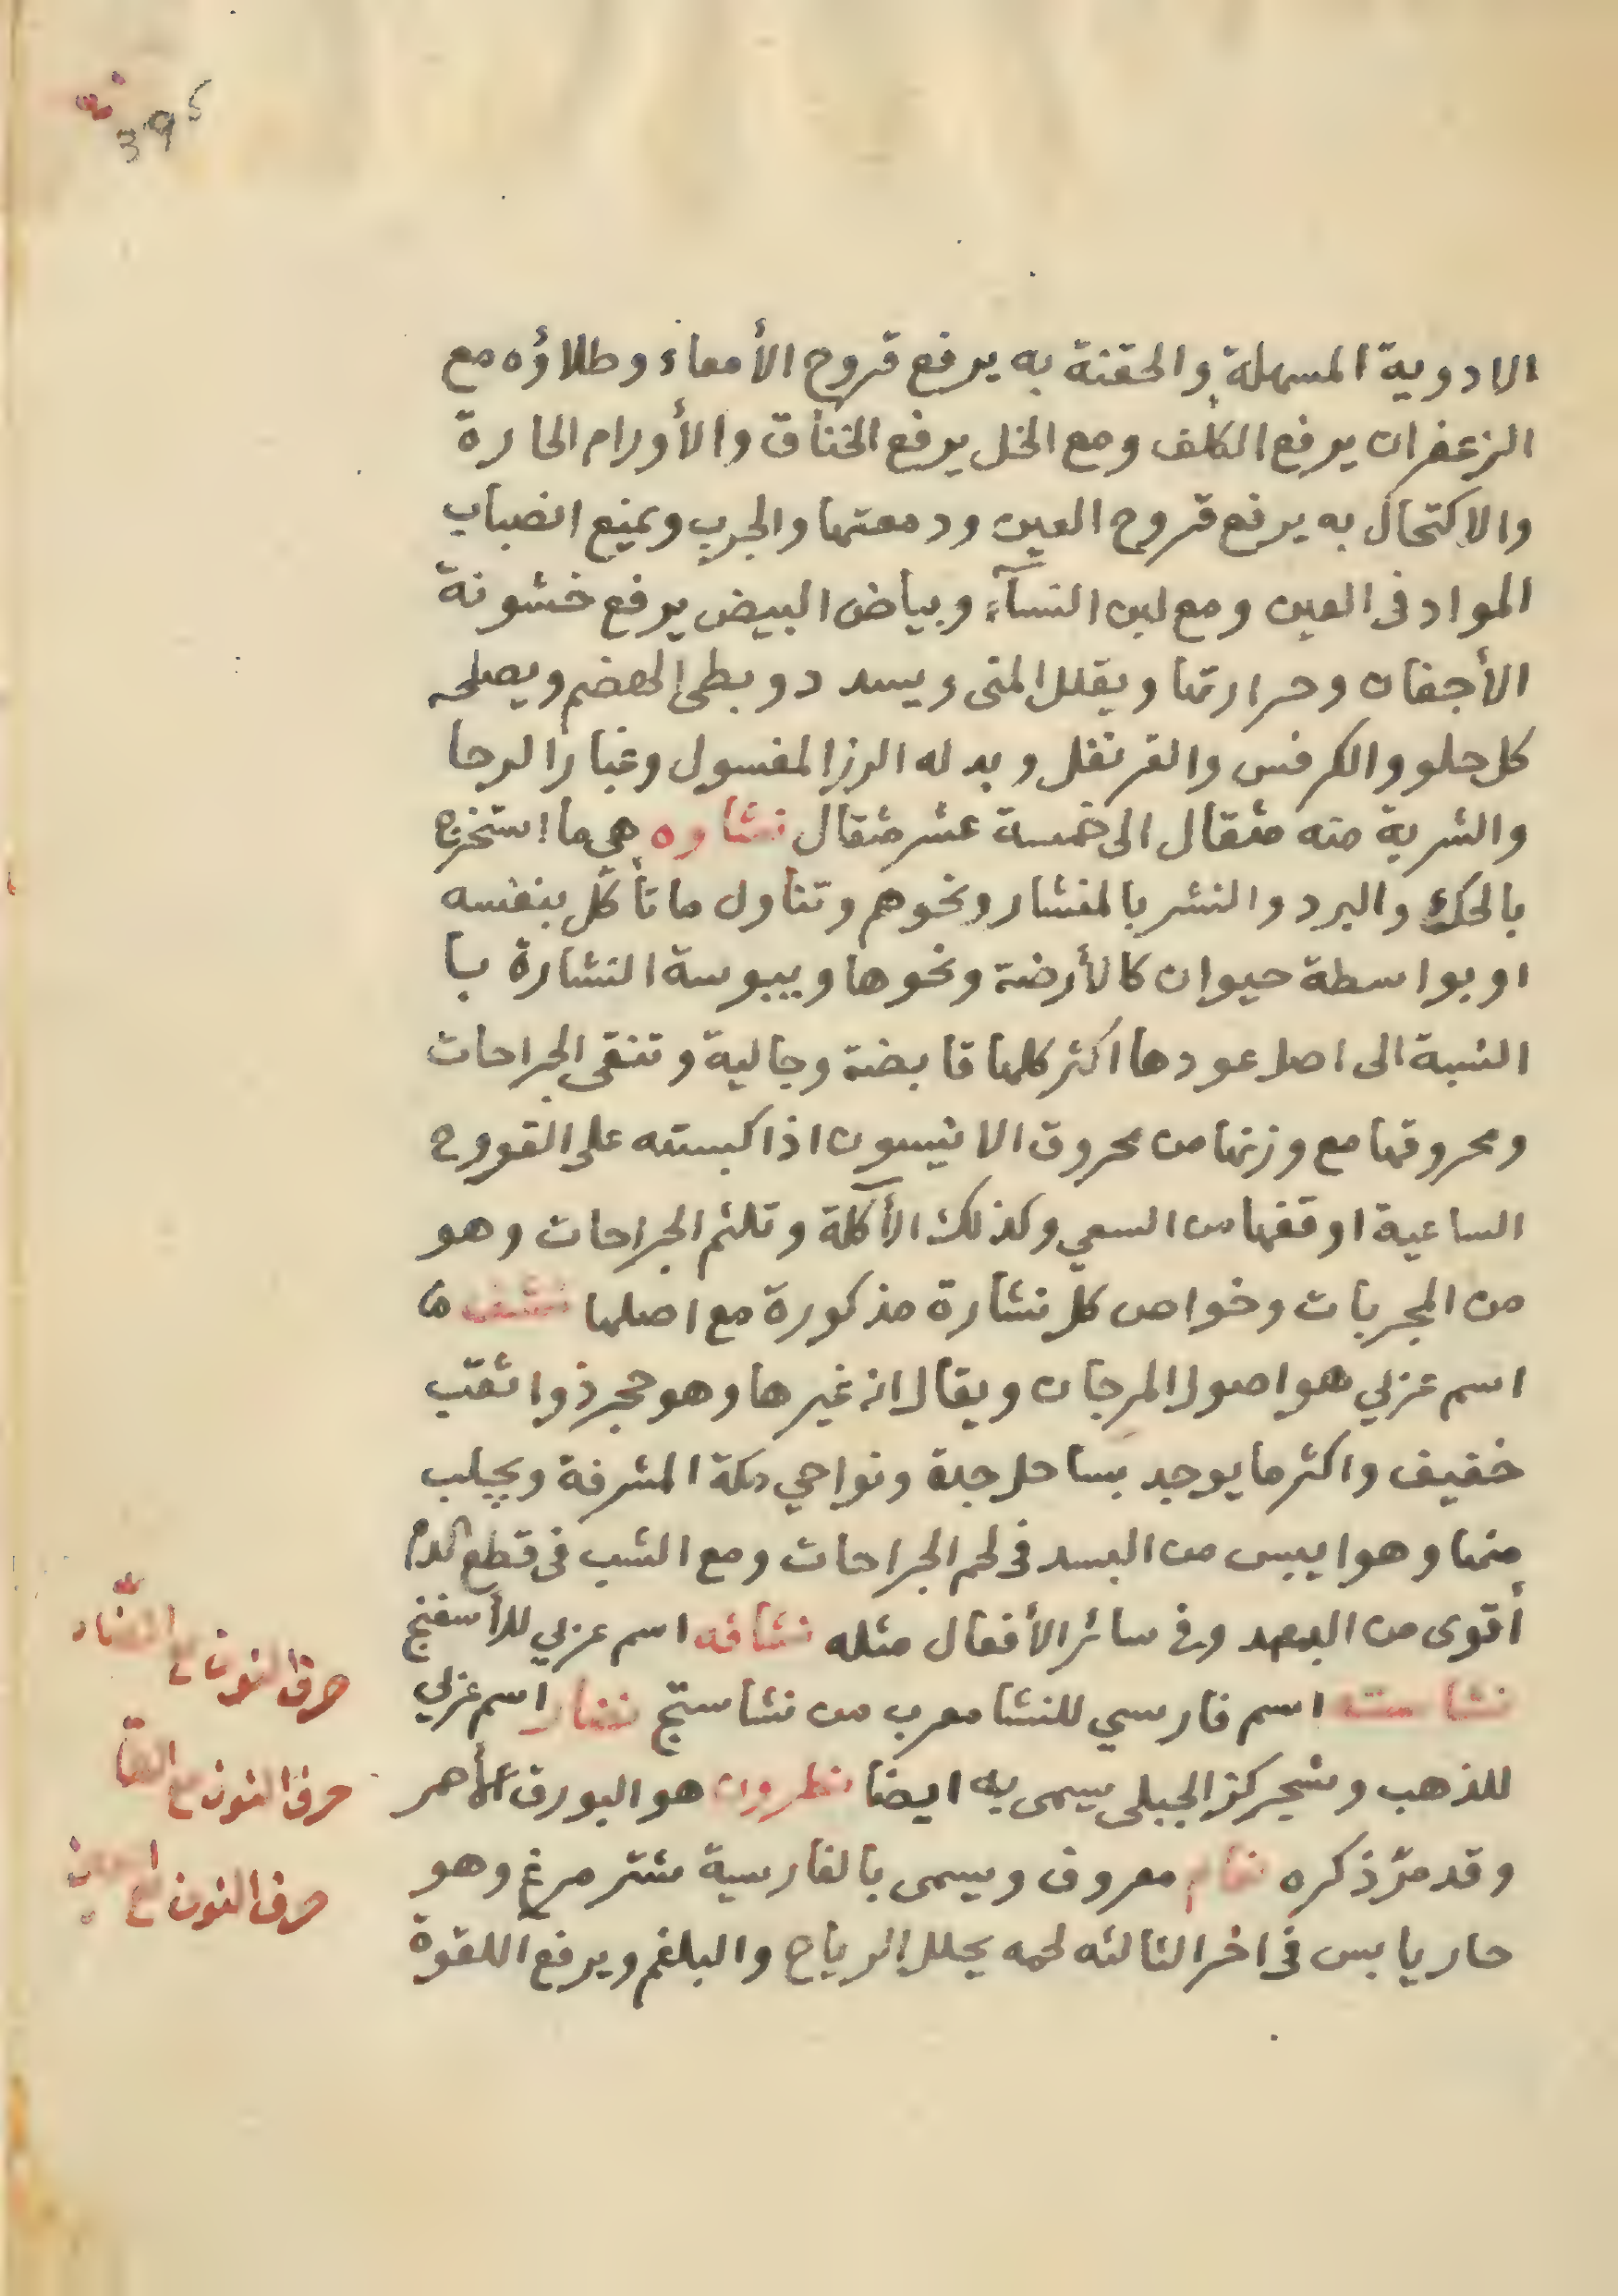 395
الادوية المسهلة والحقنة به يرفع قروح الأمعاء وطلاؤه مع
الزعفران يرفع الكلف ومع الخل يرفع الخناق والأورام الحارة
والاكتحال به يرفع قروح العين ودمعتها والجرب ويمنع انضباب
المواد فى العين ومع لبن النسآء وبياض البيض يرفع خشونة
الأجفان وحرارتها ويقلل المنى ويسدد وبطى الهضم ويصلحه
كل حلو والكرفس والقرنفل وبدله الرز المغسول وغبار الرحا
والشربة منه مثقال الى خمسة عشر مثقال نشاره هي ما استخرج
بالحك والبرد والنشر بالمنشار ونحوهم وتناول ما تأكل بنفسه
او بواسطة حيوان كالأرضة ونحوها ويبوسة النشارة با
النسبة الى اصل عودها اكثر كلها قابضة وجالية وتنقى الجراحات
ومحروقها مع وزنها من محروق الانيسون اذا كبسته على القروح
الساعية اوقفها من السعي وكذلك الأكلة وتلئم الجراحات وهو
من المجربات وخواص كل نشارة مذكورة مع اصلها نشف
اسم عربي هو اصول المرجان ويقال انه غيرها وهو حجر ذو اثقب
خفيف واكثر ما يوجد بساحل جدة ونواحي مكة المشرفة ويجلب
منها وهو ايبس من البسد فى لحم الجراحات ومع الشب فى قطع الدم
أقوى من البسد وفى سائر الأفعال مثله نشافه اسم عربي للأسفنج
نشاسته اسم فارسي للنشا معرب من نشاستج نضار اسم عربي
للذهب وشجر كز الجبلى يسمى به ايضا نطرون هو البورق الأحمر
وقد مرّ ذكره نعام معروف ويسمى بالفارسية شتر مرغ وهو
حار يابس فى اخر الثالثه لحمه يحلل الرياح والبلغم ويرفع اللقوة
حرف النون مع الضاد
حرف النون مع الطا
حرف النون مع العين